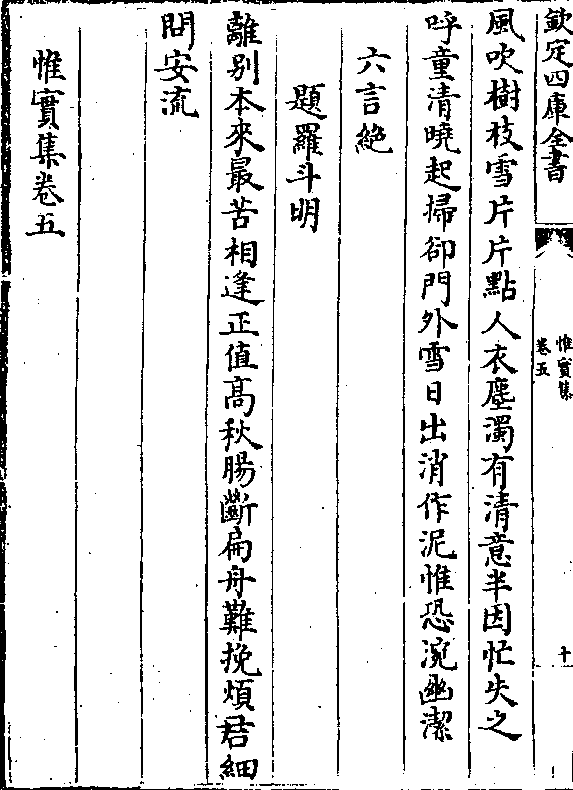 欽定四庫全書
惟實集
卷五
十
風吹樹枝雪片片點人衣塵濁有清意半因忙失之
呼童清曉起掃卻門外雪日出消作泥惟恐涴幽潔
六言絶
題羅斗明
離別本來最苦相逢正值髙秋腸斷扁舟難挽煩君細
問安流
惟實集卷五